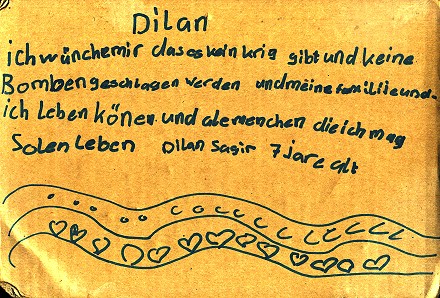 Dilan
ich wünchemir das es kein krig gibt und keine
Bomben geschlagen werden und meine familiie und
ich Leben könen und ale menchen die ich mag
Solen Leben Dilan Sagir 7 jare alt